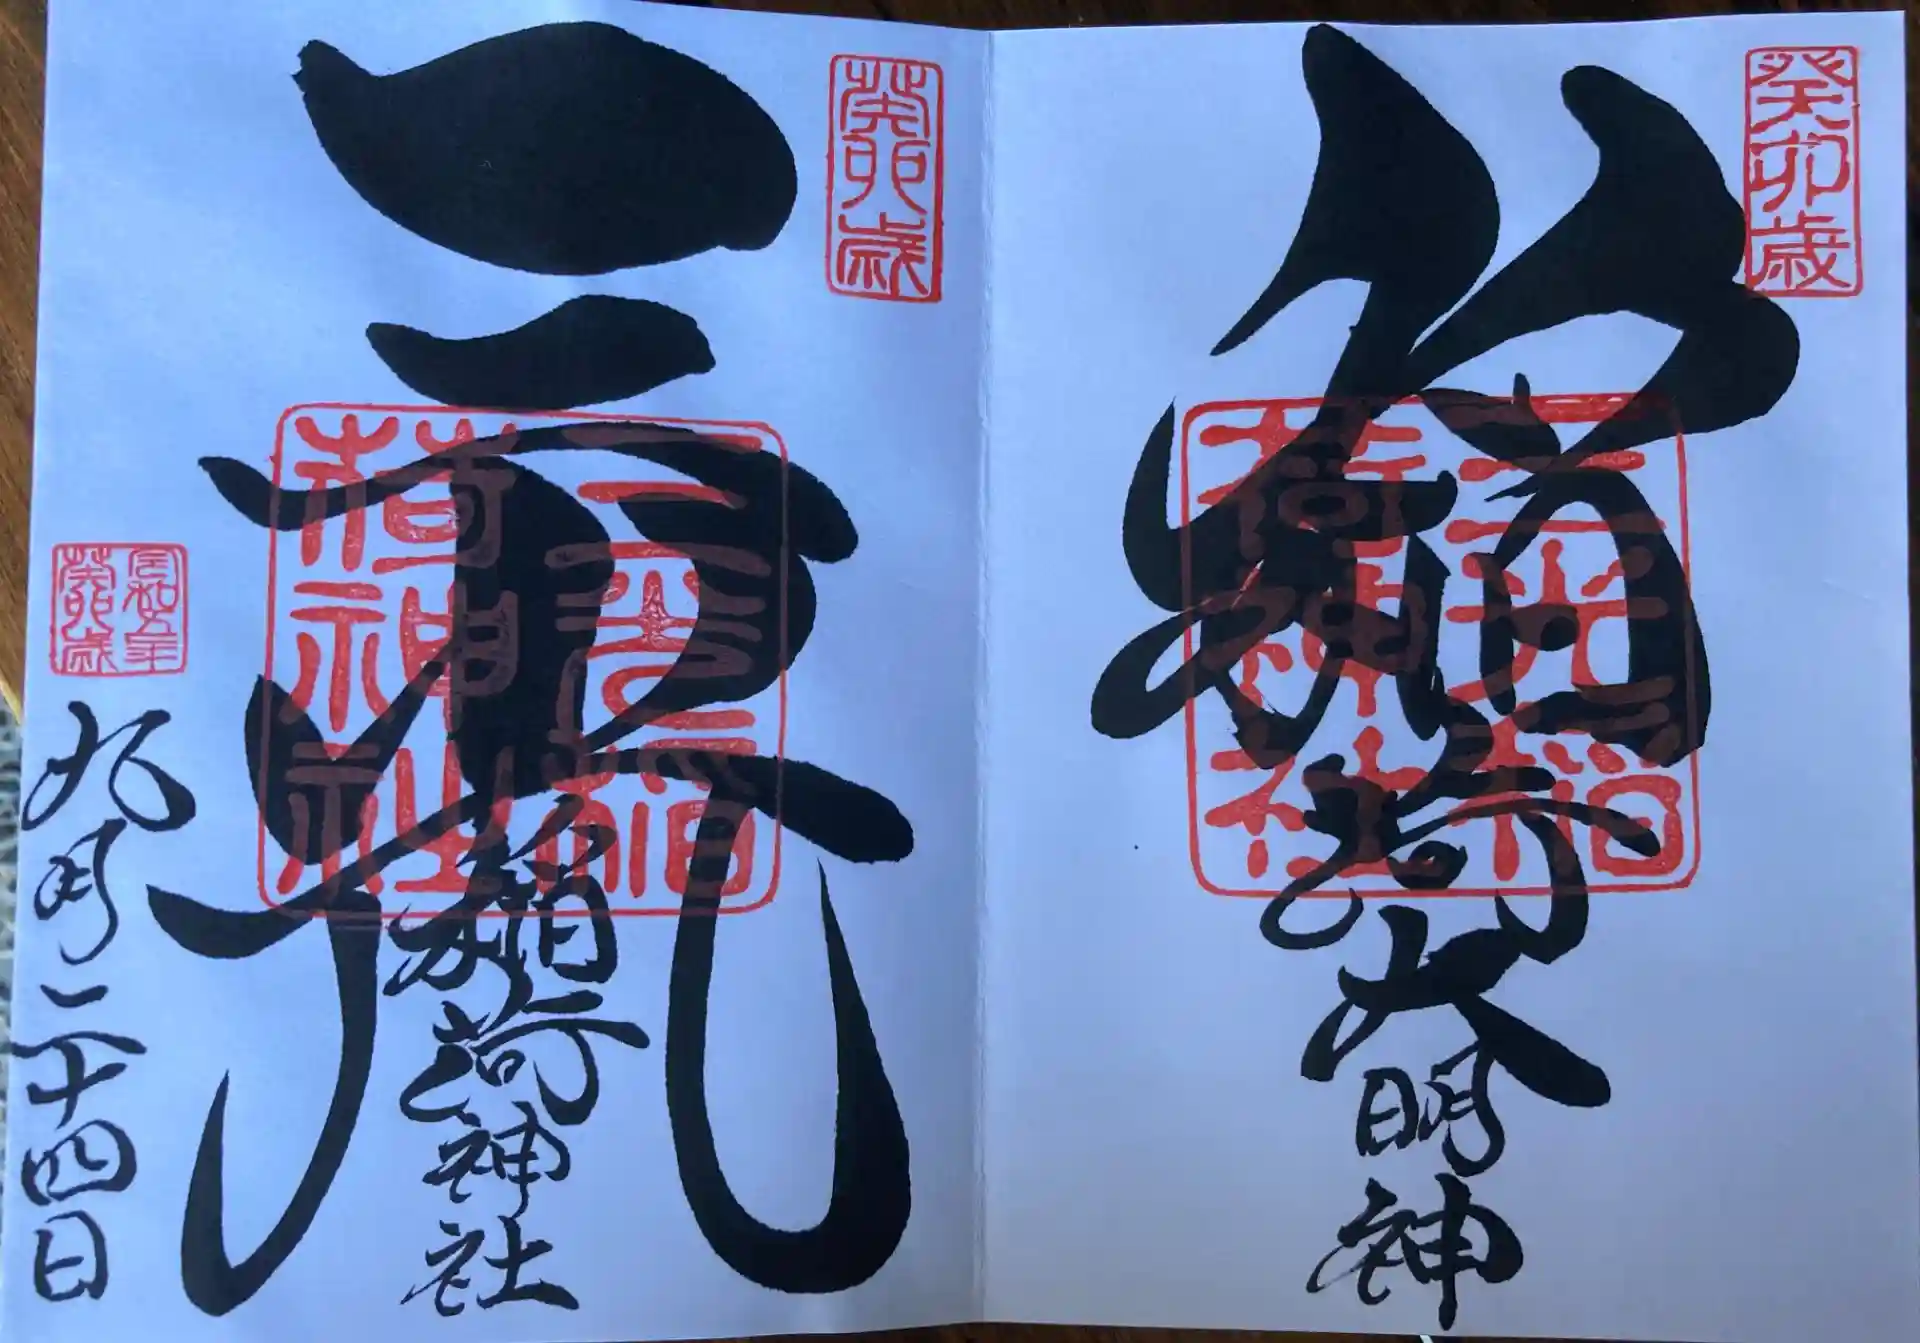 癸卯歳
稲荷大明神
三光稲
荷神社
癸卯歳
三光稲荷神社
三光稲
荷神社
令和五年
癸卯歳
九月二十四日